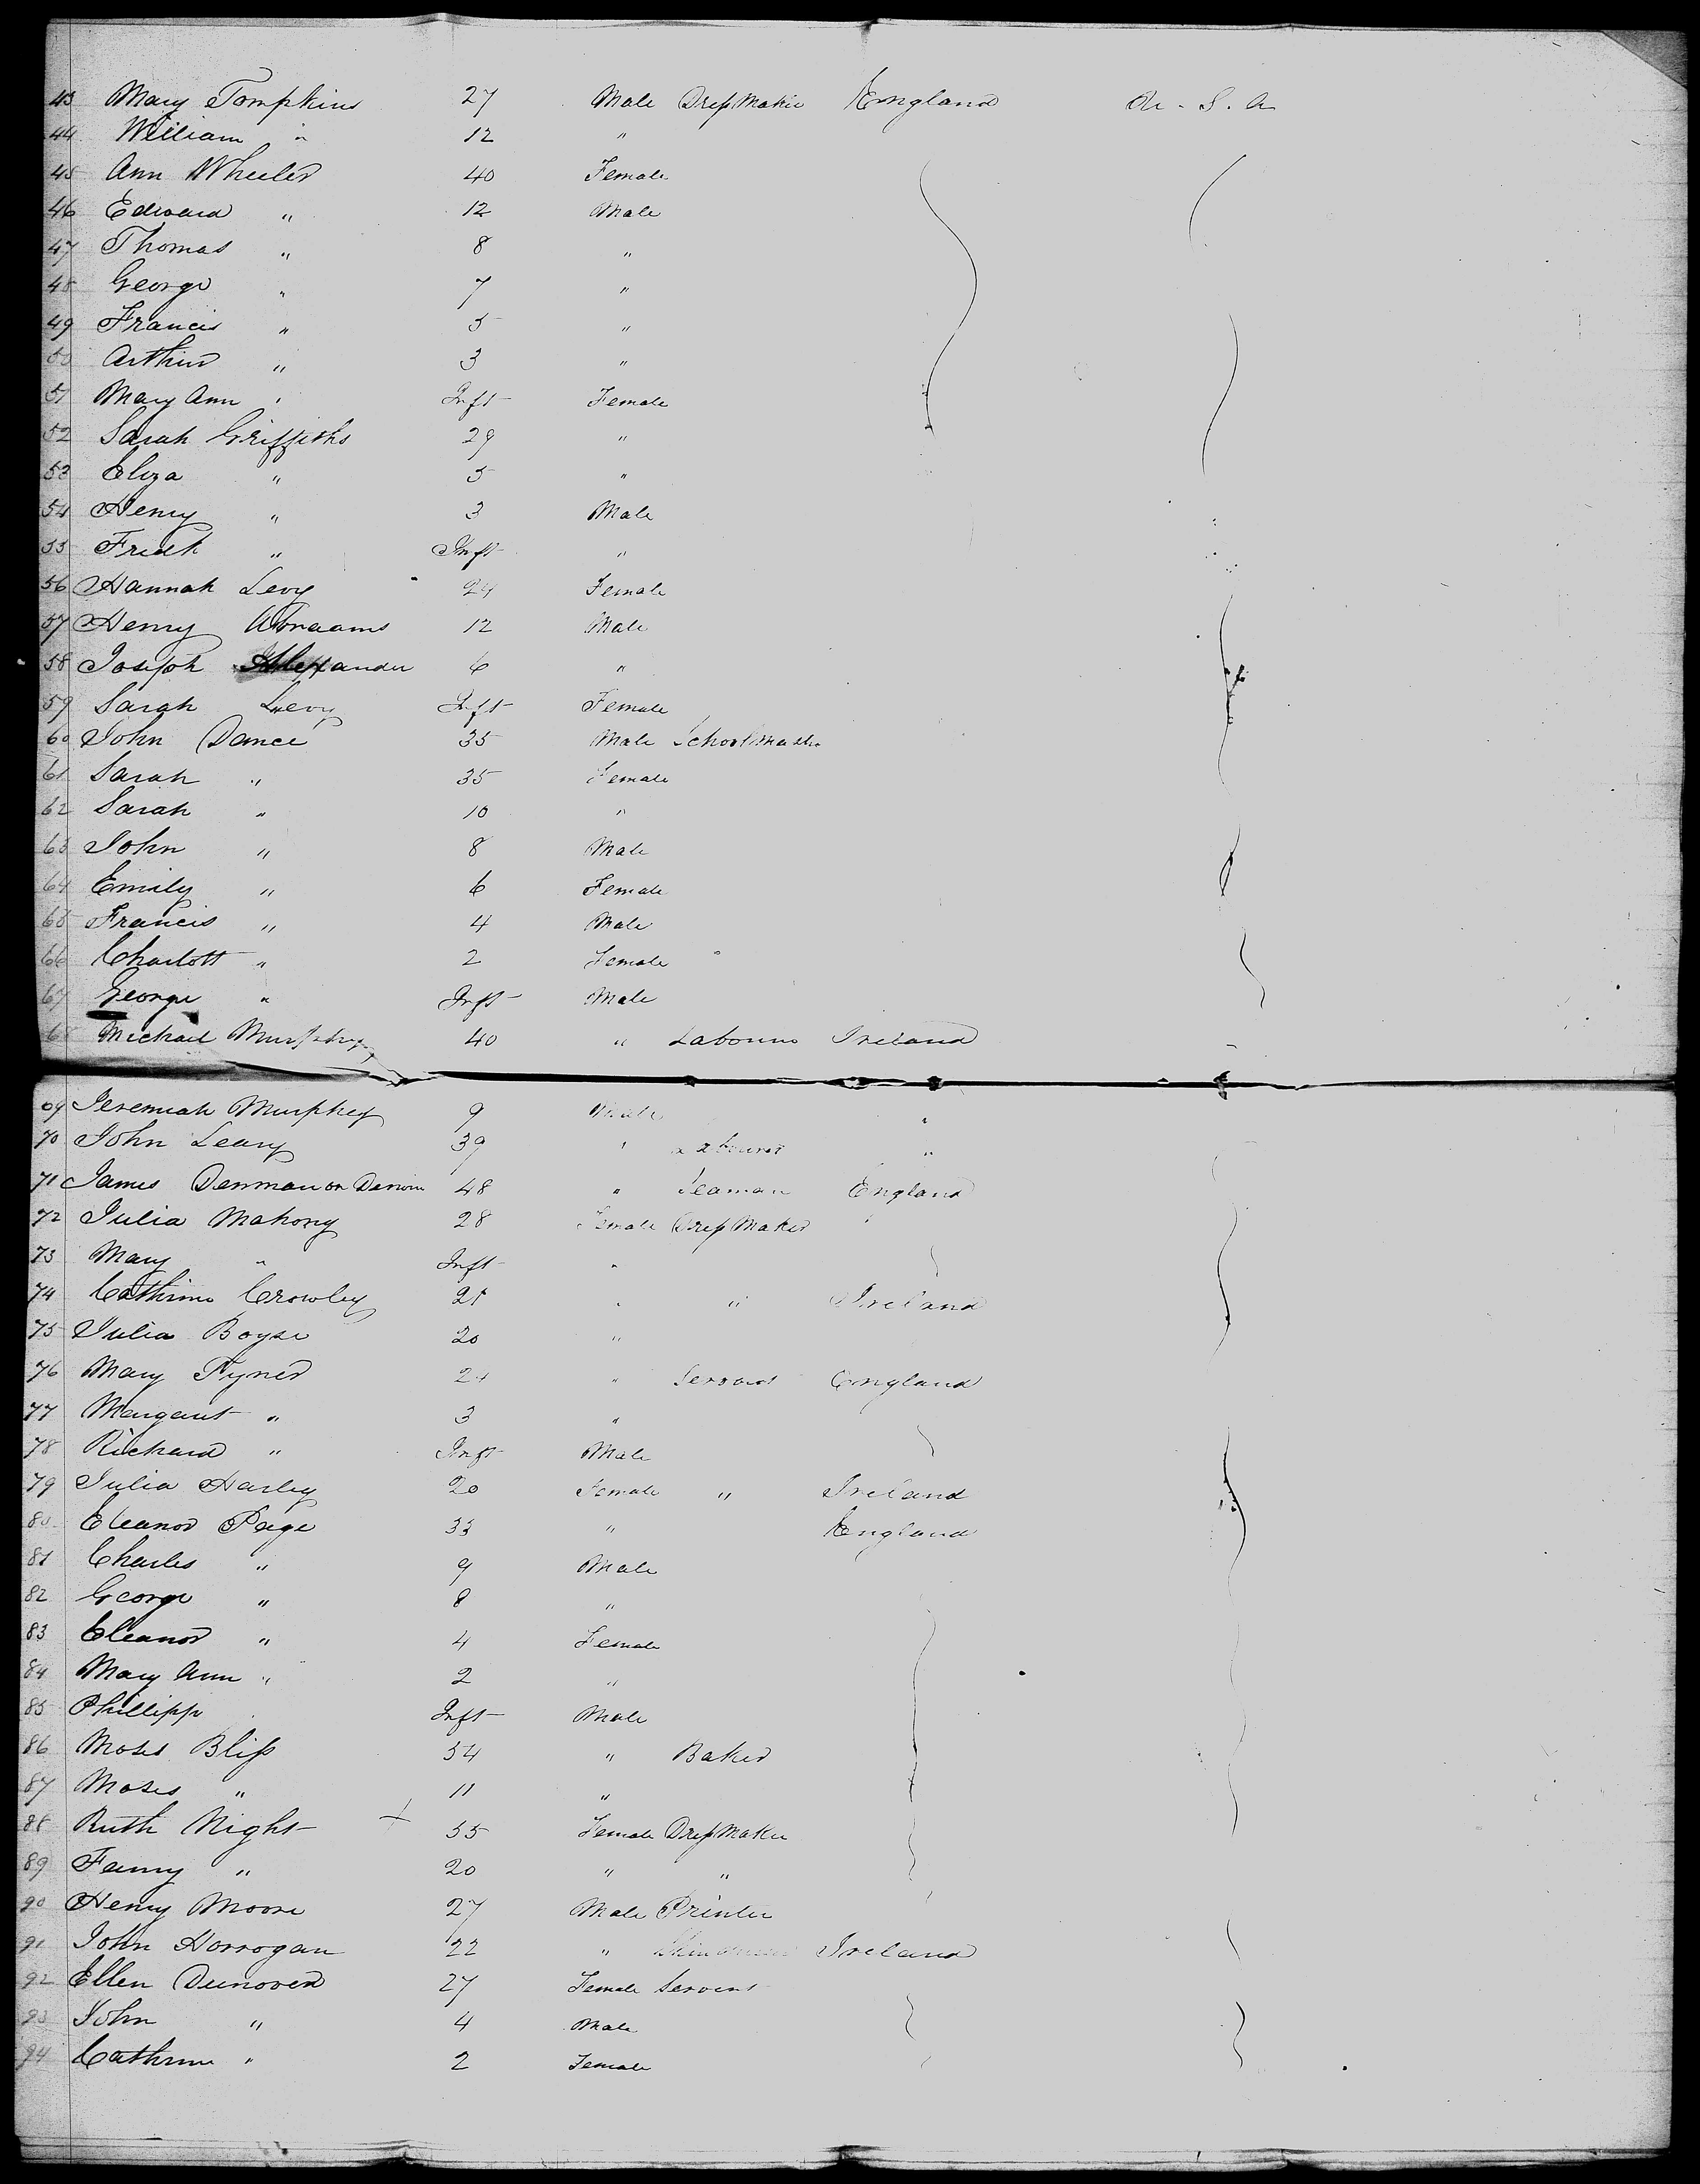 43 Mary Tompkins 27 Male DressMaker England U. S. A
44 William " 12 "
45 Ann Wheeler 40 Female
46 Edward " 12 Male
47 Thomas " 8 "
48 George " 7 "
49 Francis " 5 "
50 Arthur " 3 "
51 Mary Ann " Inft Female
52 Sarah Griffiths 29 "
53 Eliza " 5 "
54 Henry " 3 Male
55 Fredk " Inft "
56 Hannah Levy 24 Female
57 Henry Abraams 12 Male
58 Joseph Alexander 6 "
59 Sarah Levy Inft Female
60 John Dance 35 Male SchoolMaster
61 Sarah " 35 Female
62 Sarah " 10 "
63 John " 8 Male
64 Emily " 6 Female
65 Francis " 4 Male
66 Charlott " 2 Female
67 George " Inft Male
68 Michael Murphy 40 " Labourer Ireland
69 Jeremiah Murphey 9 Male "
70 John Leary 39 " Labourer "
71 James Denman or 48 " Seaman England
72 Julia Mahony 28 Female DressMaker "
73 Mary " Inft "
74 Cathrine Crowley 21 " " Ireland
75 Julia Boyse 20 "
76 Mary Tyner 24 " Servant England
77 Margaret " 3 "
78 Richard " Inft Male
79 Julia Harley 20 Female " Ireland
80 Eleanor Page 33 " England
81 Charles " 9 Male
82 George " 8 "
83 Eleanor " 4 Female
84 Mary Ann " 2 "
85 Phillipp Inft Male
86 Moses Bliss 54 " Baker
87 Moses " 11 "
88 Ruth Night + 55 Female DressMaker
89 Fanny " 20 " "
90 Henry Moore 27 Male Printer
91 John Horrogan 22 " Ireland
92 Ellen Dunover 27 Female Servent
93 John " 4 Male
94 Cathrine " 2 Female